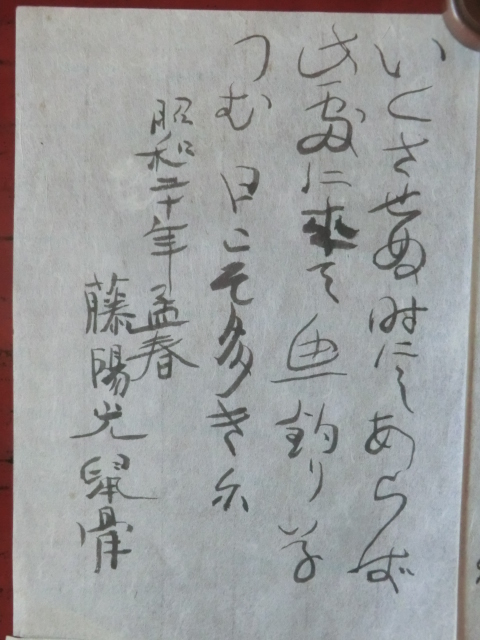 いくさせぬ時にしあらず
此處に来て魚釣り草
つむ日こそ多き尓
昭和二十年孟春
藤陽光鼠骨